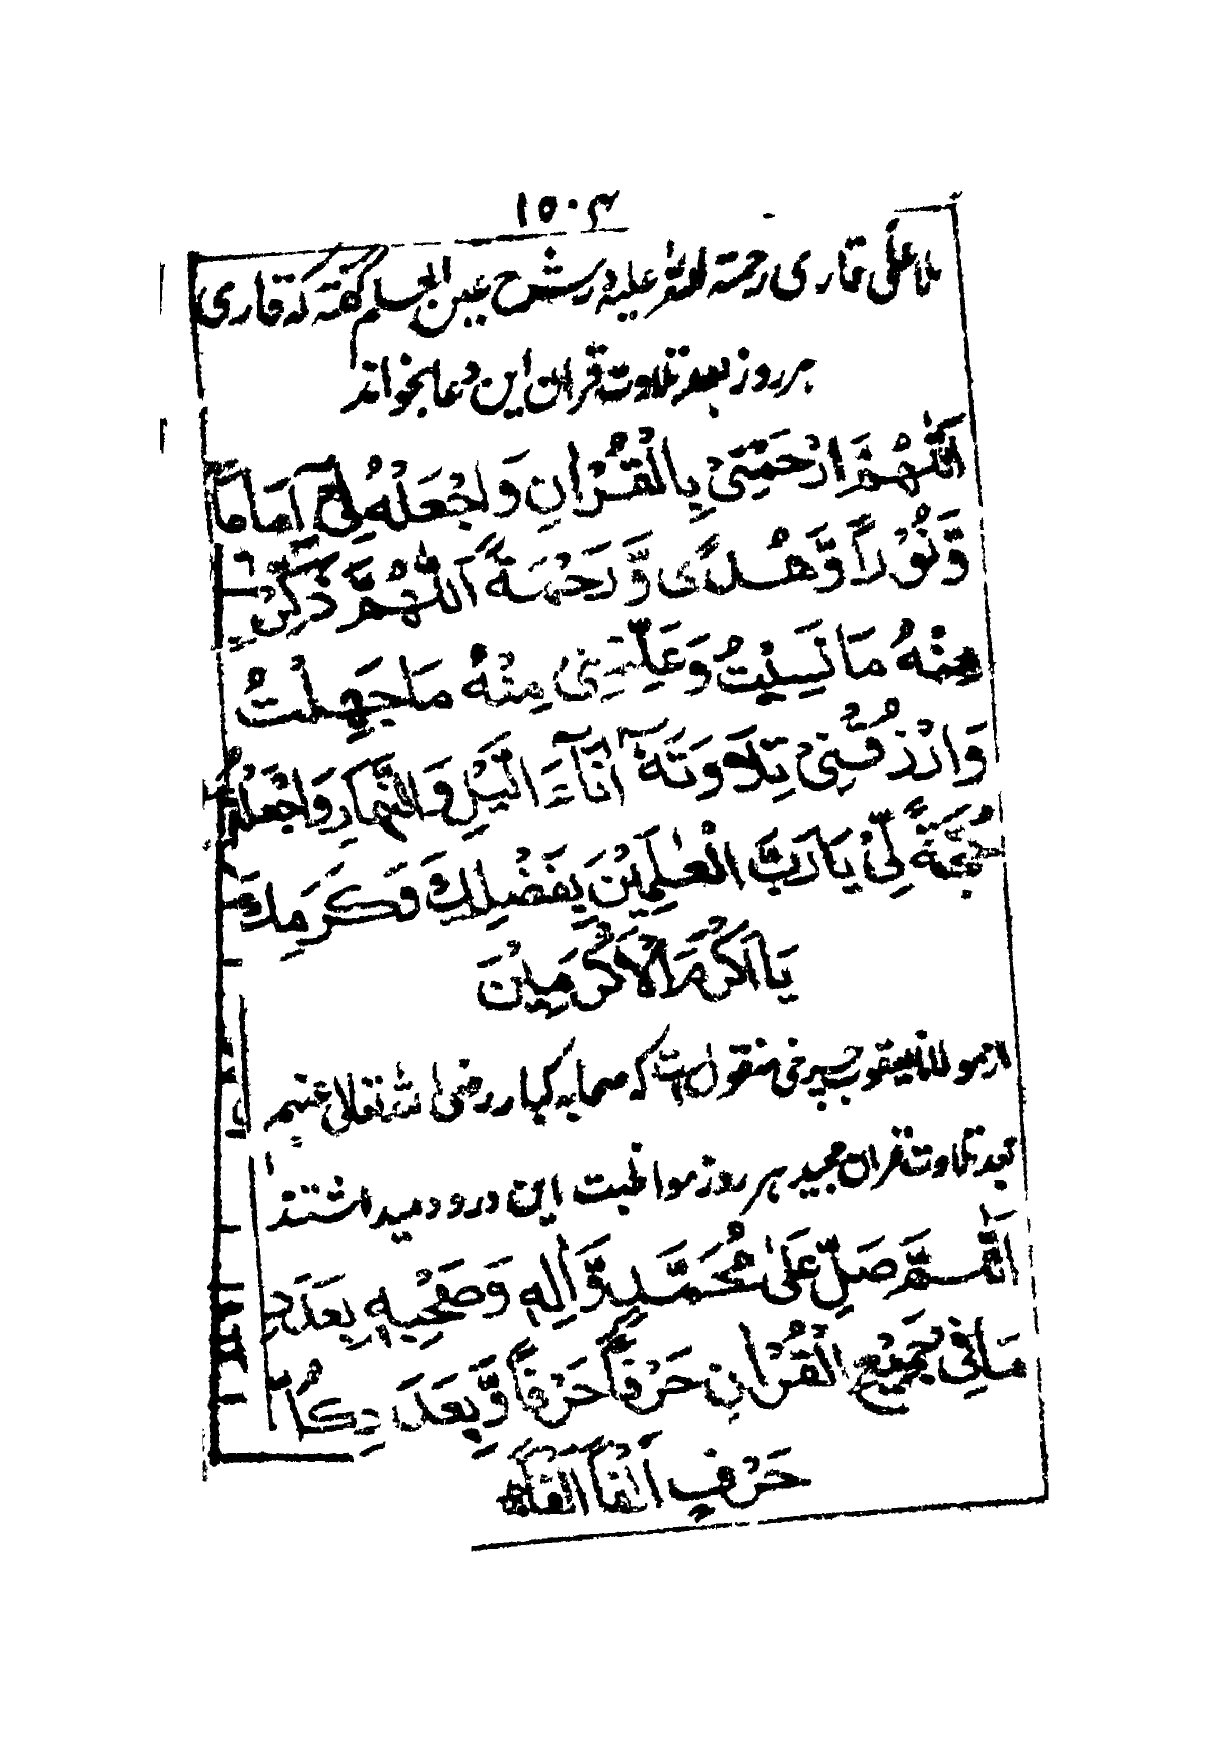 ١٥٠٣
ملا علی قاری رحمة الله علیه در شرح عین العلم گفته که قاری
هر روز بعد تلاوت قرآن این دعا بخواند
اَللّٰهُمَّ ارْحَمْنِیْ بِالْقُرْاٰنِ وَاجْعَلْهُ لِیْ اِمَامًا
وَّنُوْرًا وَّهُدًی وَّرَحْمَةً اَللّٰهُمَّ ذَكِّرْنِیْ
مِنْهُ مَا نَسِیْتُ وَعَلِّمْنِیْ مِنْهُ مَا جَهِلْتُ
وَارْزُقْنِیْ تِلَاوَتَهٗ اٰنَآءَ الَّیْلِ وَالنَّهَارِ وَاجْعَلْهُ
حُجَّةً لِّیْ یَا رَبَّ الْعٰلَمِیْنَ بِفَضْلِكَ وَكَرَمِكَ
یَا اَكْرَمَ الْاَكْرَمِیْنَ
از مولانا یعقوب چرخی منقول است که صحابه کبار رضی الله تعالی عنهم
بعد تلاوت قرآن مجید هر روز مواظبت این درود میداشتند
اَللّٰهُمَّ صَلِّ عَلٰی مُحَمَّدٍ وَّاٰلِهٖ وَصَحْبِهٖ بِعَدَدِ
مَا فِیْ جَمِیْعِ الْقُرْاٰنِ حَرْفًا حَرْفًا وَّبِعَدَدِ كُلِّ
حَرْفٍ اَلْفًا اَلْفًا